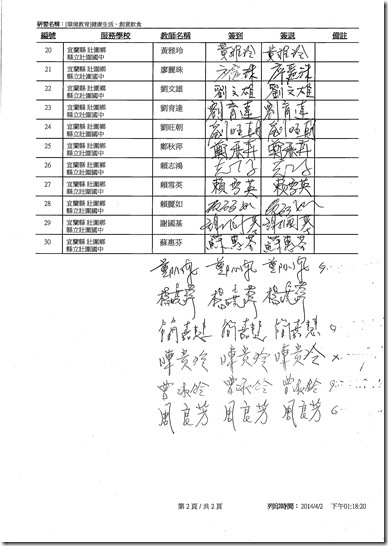 研習名稱：[環境教育]健康生活、創意飲食
編號 服務學校 教師名稱 簽到 簽退 備註
20 宜蘭縣 壯圍鄉 縣立壯圍國中 黃雅玲 黃雅玲 黃雅玲
21 宜蘭縣 壯圍鄉 縣立壯圍國中 廖麗珠 廖麗珠 廖麗珠
22 宜蘭縣 壯圍鄉 縣立壯圍國中 劉文雄 劉文雄 劉文雄
23 宜蘭縣 壯圍鄉 縣立壯圍國中 劉育達 劉育達 劉育達
24 宜蘭縣 壯圍鄉 縣立壯圍國中 劉旺朝 劉旺朝 劉旺朝
25 宜蘭縣 壯圍鄉 縣立壯圍國中 鄭秋萍 鄭秋萍 鄭秋萍
26 宜蘭縣 壯圍鄉 縣立壯圍國中 賴志鴻
27 宜蘭縣 壯圍鄉 縣立壯圍國中 賴雪英 賴雪英 賴雪英
28 宜蘭縣 壯圍鄉 縣立壯圍國中 賴麗如
29 宜蘭縣 壯圍鄉 縣立壯圍國中 謝國基 謝國基 謝國基
30 宜蘭縣 壯圍鄉 縣立壯圍國中 蘇惠芬 蘇惠芬 蘇惠芬
簡嘉慧 簡嘉慧 簡嘉慧
陳貴玲 陳貴玲 陳貴玲 x
周良芳 周良芳 周良芳
第 2 頁 / 共 2 頁 列印時間： 2014/4/2 下午01:18:20